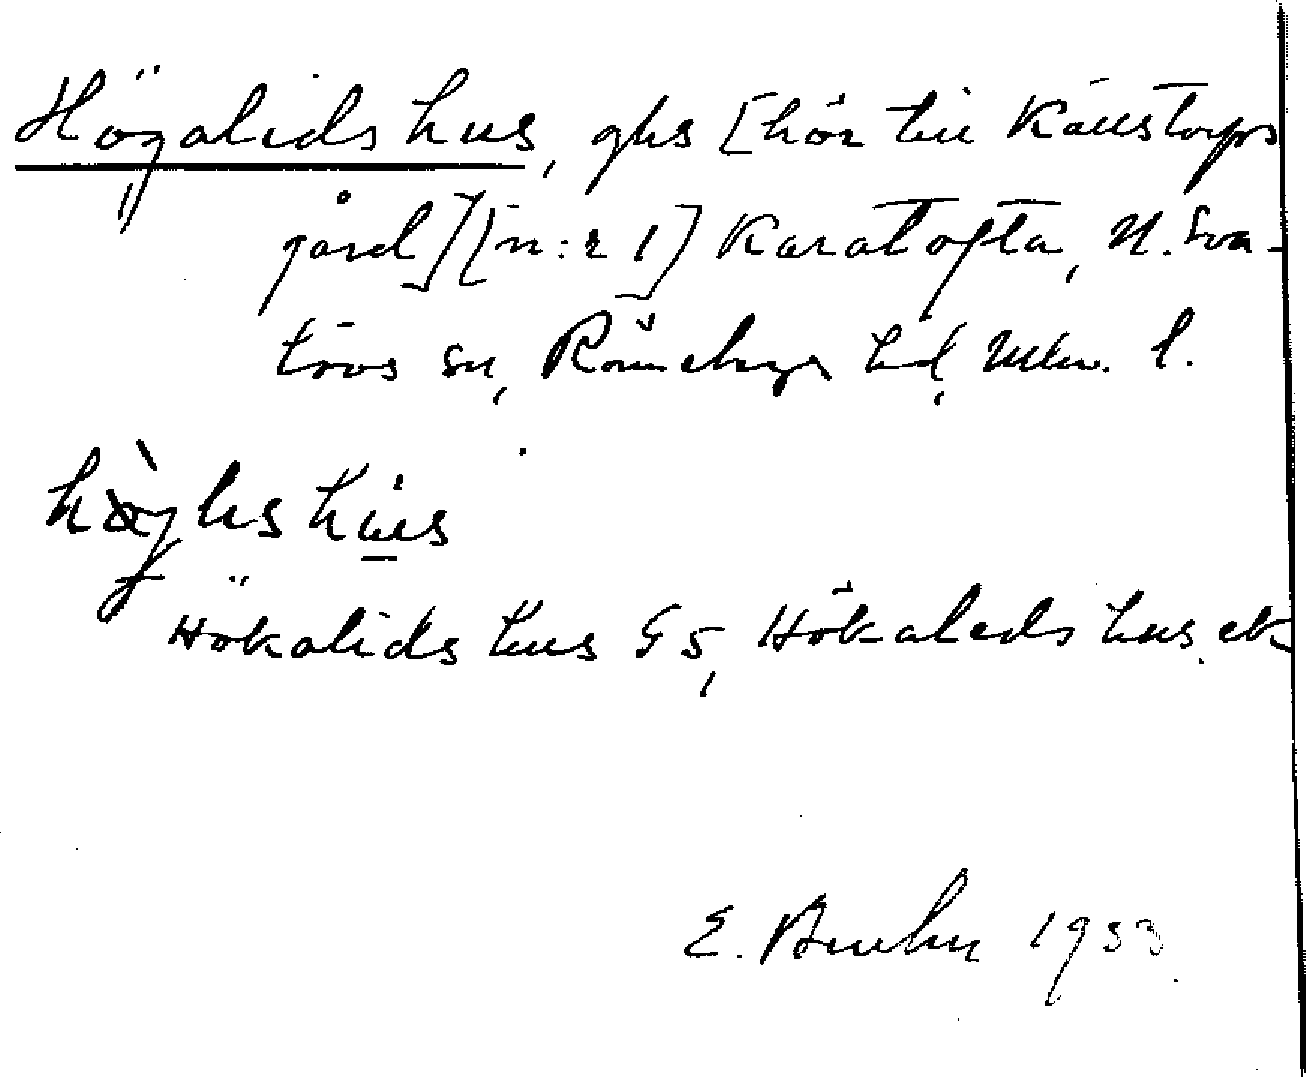 Högalids hus, ghs [hör till Källstorps
gård] [n:r 1] Karatofta, N. Sva-
lövs sn, Rönnebergs hd, Mlm. l.
Hökalids hus G5, Hökaleds hus ek
E. Bruhn 1933